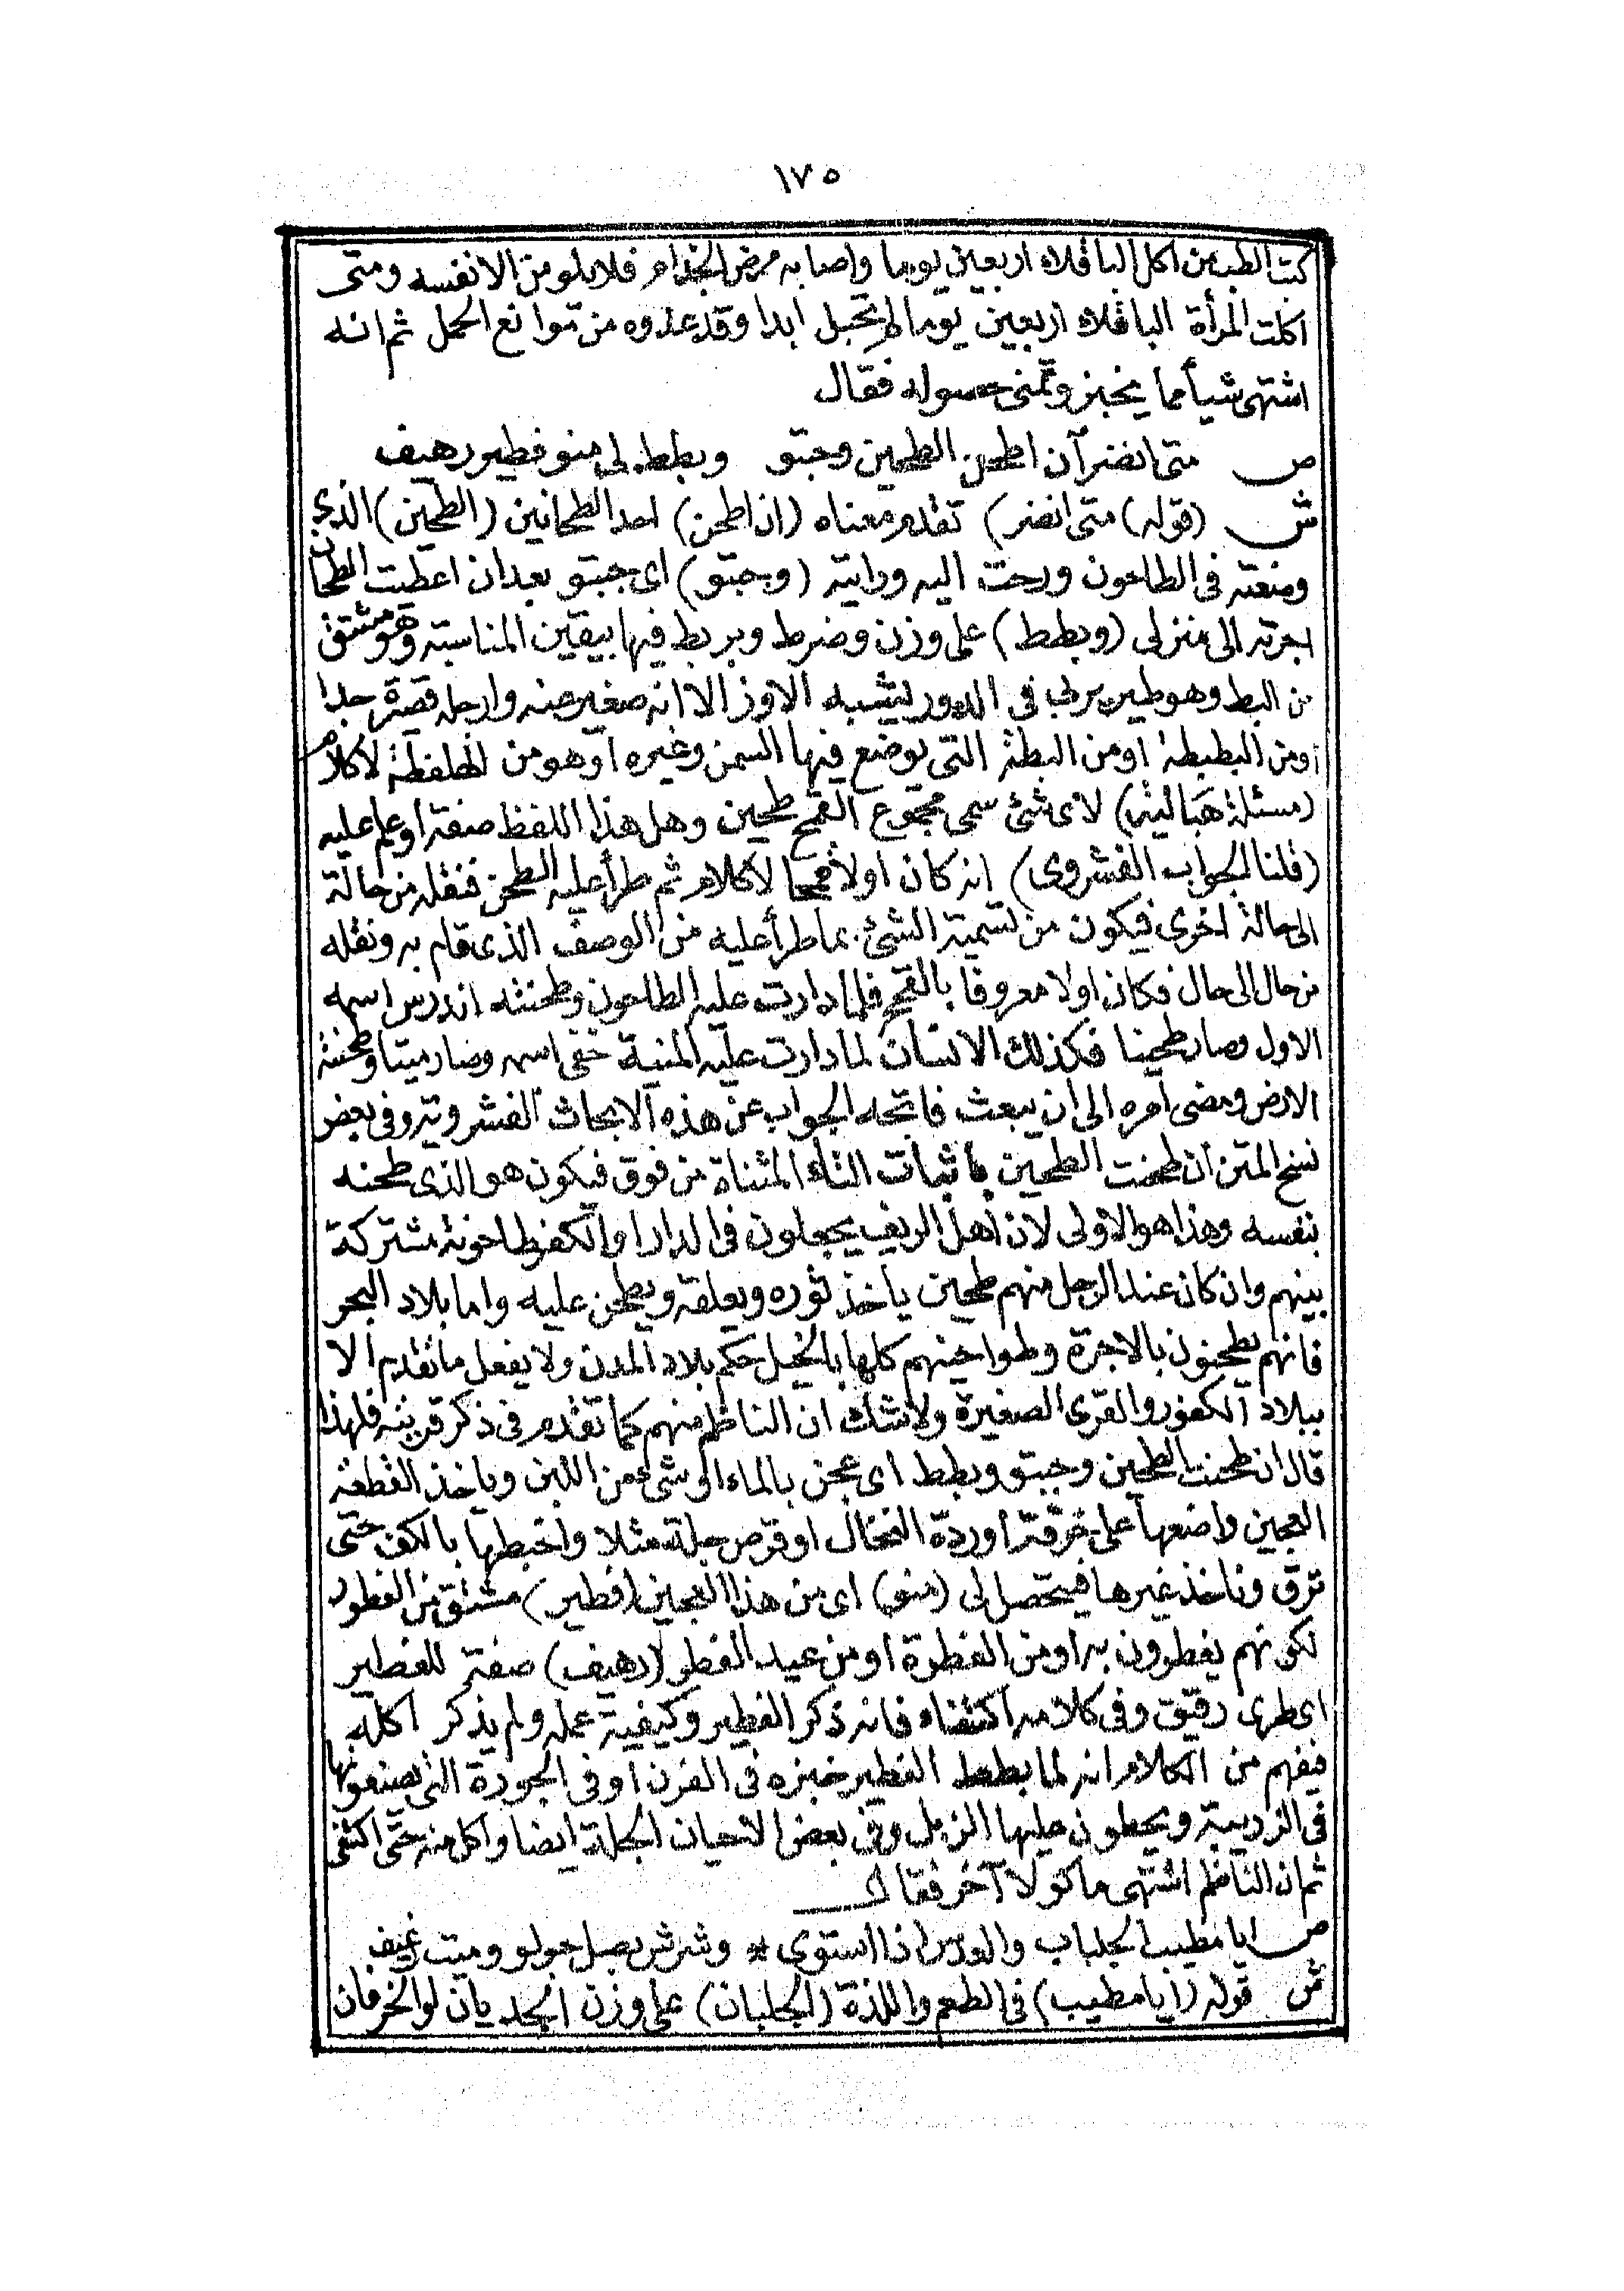 ١٧٥
كتب الطب من اكل الباقلاء اربعين يوما واصابه مرض الجذام فلا يلومن الا نفسه ومتى
اكلت المرأة الباقلاء اربعين يوما لم تحبل ابدا وقد عدوه من موانع الحمل ثم انه
اشتهى شيأ مما يخبز وتمنى حصوله فقال
ص متى انضر آن اطحن الطحين وجبتو وبطط لى منو فطير رهيف
ش (قوله) متى انضر) تقدم معناه (ان اطحن) احد الطحانين (الطحين) الذى
وضعته فى الطاحون ورحت اليه ورايته (وجبتو) اى جبتو بعد ان اعطت الطحان
اجرته الى منزلى (وبطط) على وزن وضرط وبربط فيها بيقين المناسبة وهو مشتق
من البط وهو طير يربى فى الدور يشبه الاوز الا انه صغير منه وارجله قصيرة جدا
أو من البطبطة او من البطة التى يوضع فيها السمن وغيره او هو من اللفلفطة لا كلام
(مسئلة هبالية) لاى شئ سمى مجموع القمح طحين وهل هذا اللفظ صفة او علم عليه
(قلنا الجواب الفشروى) انه كان اولا قمحا لا كلام ثم طرأ عليه الطحن فنقله من حالة
الى حالة اخرى فيكون من تسمية الشئ بما طرأ عليه من الوصف الذى قام به ونقله
من حال الى حال فكان اولا معروفا بالقمح فلما دارت عليه الطاحون وطحنته اندرس اسمه
الاول وصار طحينا فكذلك الانسان لما دارت عليه المنية خفى اسمه وصار ميتا وطحنته
الارض ومضى امره الى ان يبعث فاتجه الجواب عن هذه الابحاث الفشروية وفى بعض
نسخ المتن ان طحنت الطحين باثبات التاء المثناة من فوق فيكون هو الذى طحنه
بنفسه وهذا هو الاولى لان اهل الريف يجعلون فى الدار او الكفر طاحونة مشتركة
بينهم وان كان عند الرجل منهم طحين ياخذ ثوره ويعلقه ويطحن عليه واما بلاد البحر
فانهم يطحنون بالاجرة وطواحينهم كلها بالخيل حكم بلاد المدن ولا يفعل ما تقدم الا
ببلاد الكفور والقرى الصغيرة ولا شك ان الناظم منهم كما تقدم فى ذكر قريته فلهذا
قال ان طحنت الطحين وجبتو وبطط اى عجن بالماء او شئ من اللبن وياخذ القطعة
العجين واضعها على خرقة او ردة النخال او قرص جلة مثلا واخبطها بالكف حتى
ترق وناخذ غيرها فيتحصل لى (منو) اى من هذا العجين (فطير) مشتق من الفطور
لكونهم يفطرون به او من الفطرة او من عيد الفطر (رهيف) صفة للفطير
اى طرى رقيق وفى كلامه اكتفاء فانه ذكر الفطير وكيفية عمله ولم يذكر اكله
فيفهم من الكلام انه لما بطط الفطير خبزه فى الفرن او فى الجورة التى يصنعونها
فى الزريبة ويحطون عليها الزبل وفى بعض الاحيان الجلة ايضا واكل منه حتى اكتفى
ثم ان الناظم اشتهى ماكولا آخر فقال
ص ايا مطيب الجلبان والعدس اذا استوى * وشرش بصل حولو وميت رغيف
ش قوله (ايا مطيب) فى الطعم واللذة (الجلبان) على وزن الجديان او الخرفان